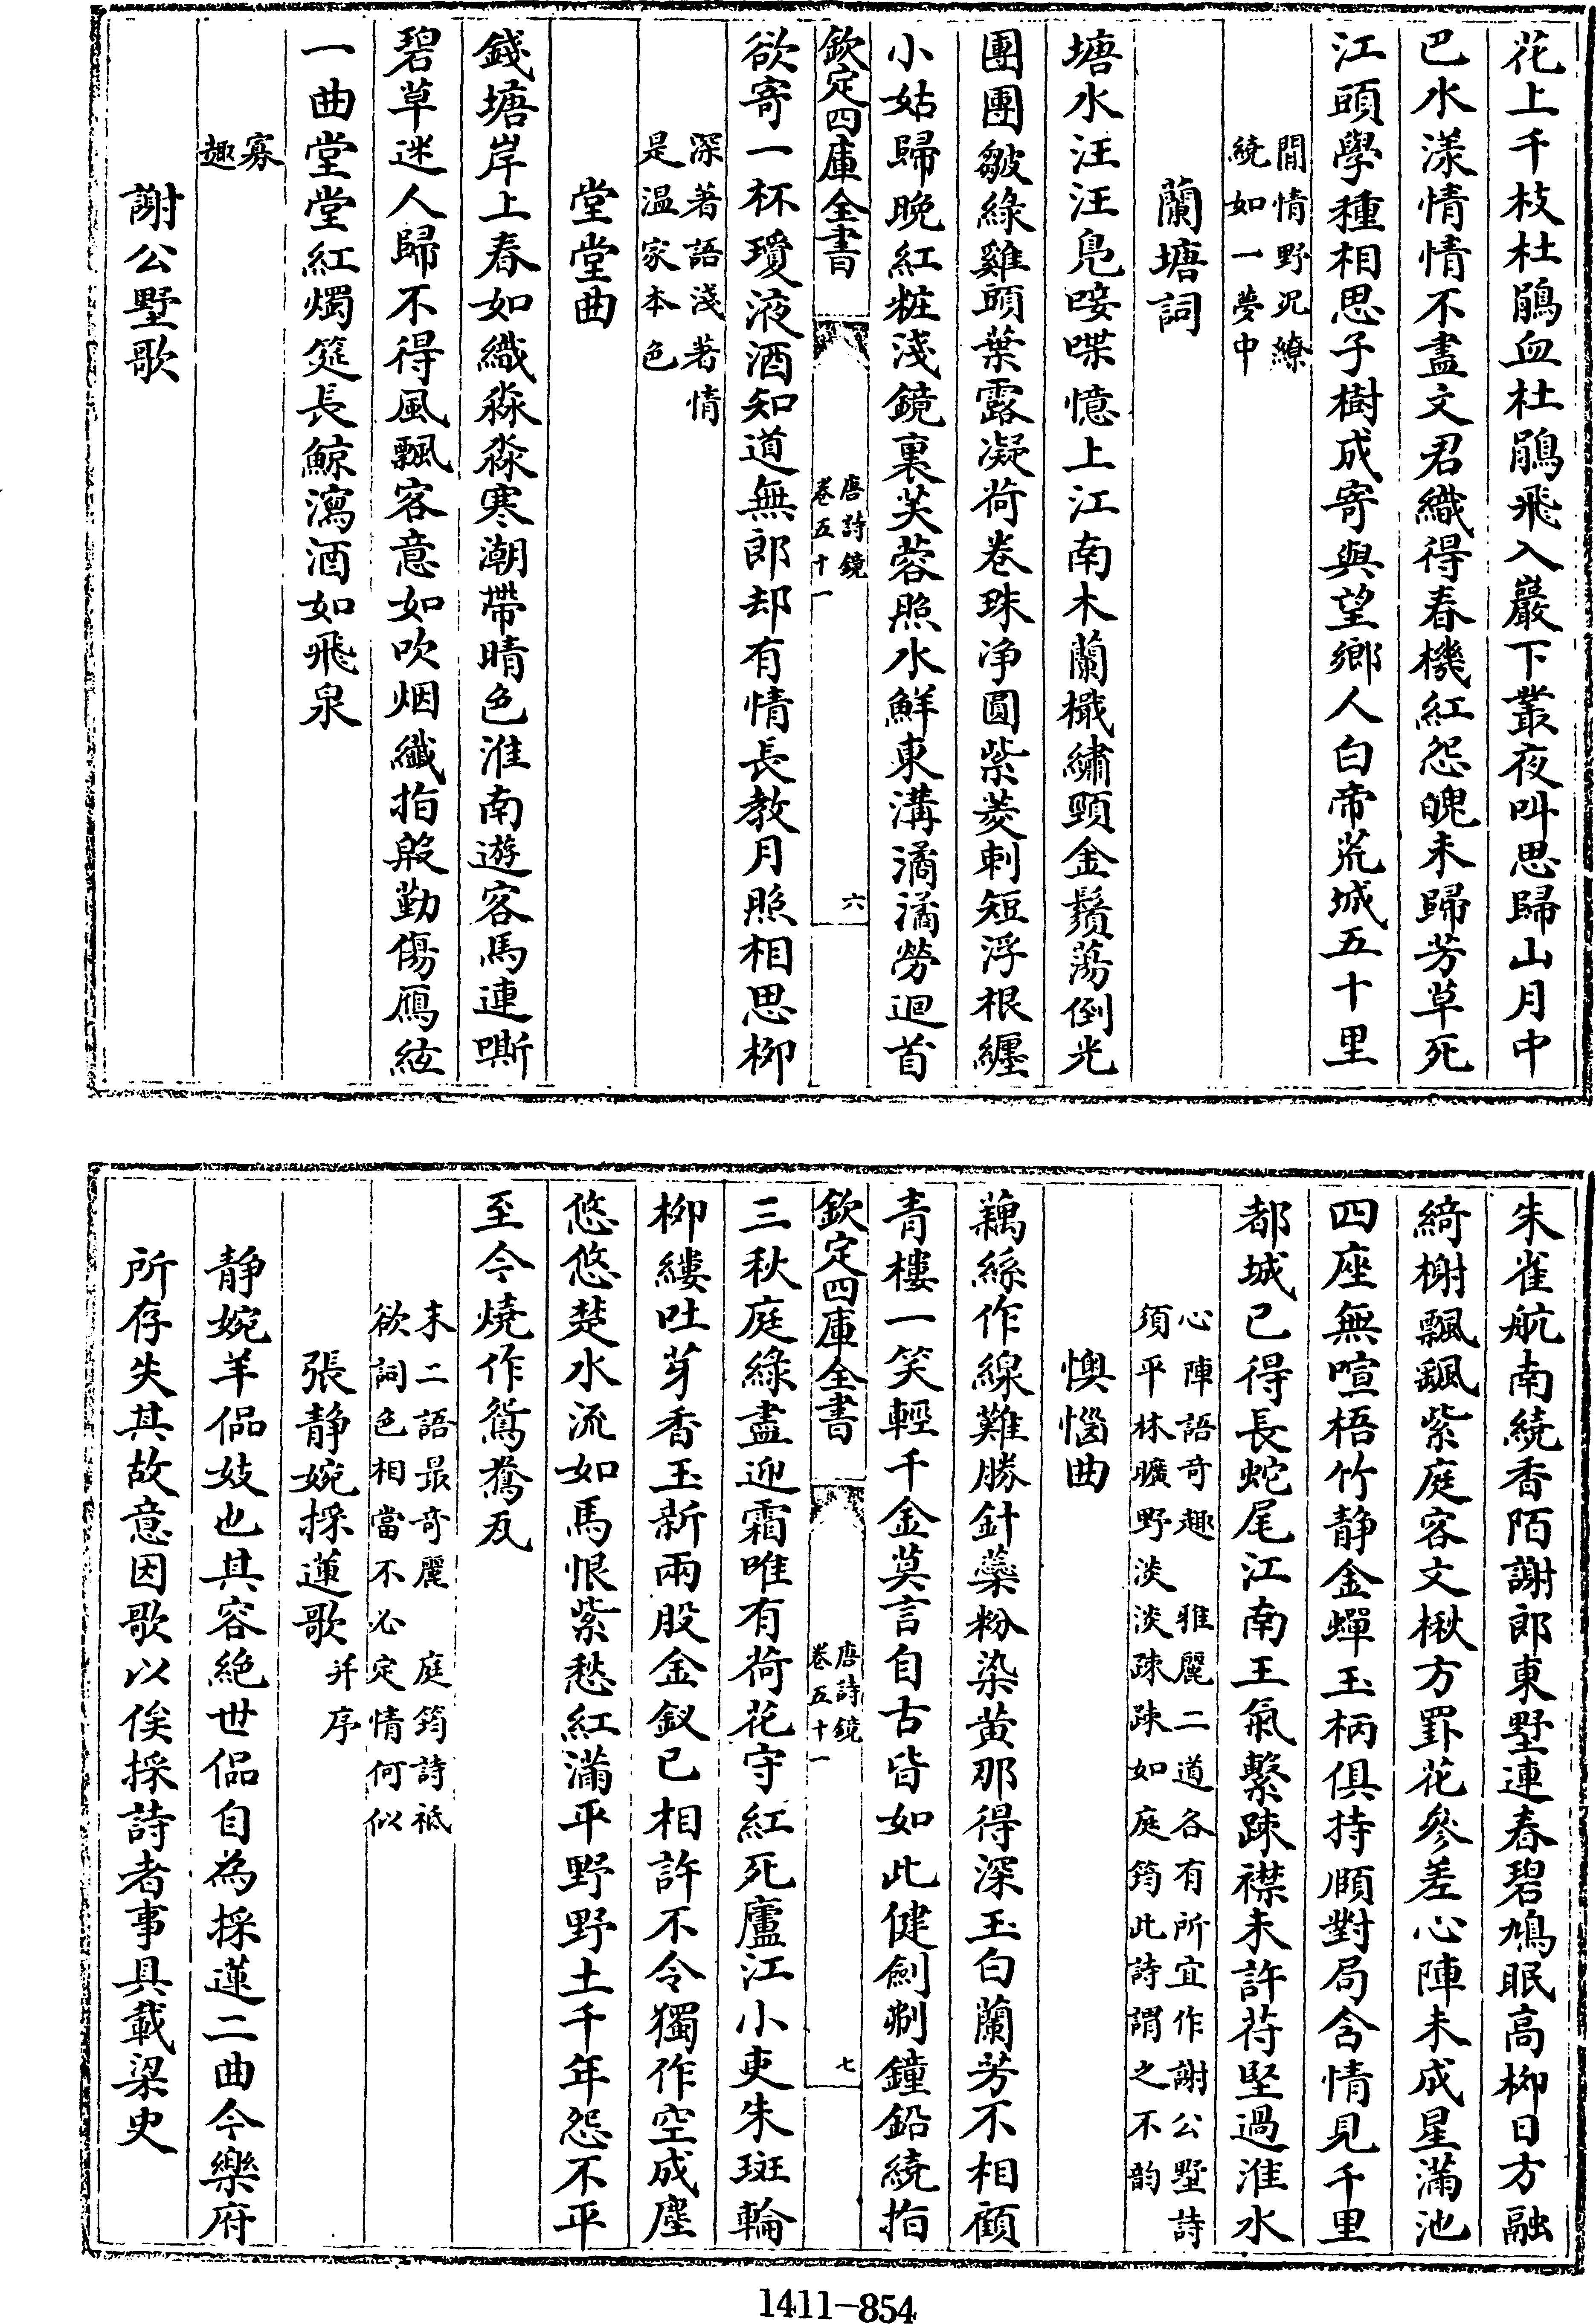 花上千枝杜鵑血杜鵑飛入巖下叢夜叫思歸山月中
巴水漾情情不盡文君織得春機紅怨魄未歸芳草死
江頭學種相思子樹成寄與望鄉人白帝荒城五十里
閒情野況繚
繞如一夢中
蘭塘詞
塘水汪汪鳧唼喋憶上江南木蘭檝繡頸金鬚蕩倒光
團團皺綠雞頭葉露凝荷卷珠净圓紫菱刺短浮根纏
小姑歸晚紅粧淺鏡裏芙蓉照水鮮東溝潏潏勞迴首
欽定四庫全書
唐詩鏡
卷五十一
六
欲寄一杯瓊液酒知道無郎却有情長教月照相思柳
深著語淺著情
是温家本色
堂堂曲
錢塘岸上春如織淼淼寒潮帶晴色淮南遊客馬連嘶
碧草迷人歸不得風飄客意如吹烟纖指殷勤傷鴈絃
一曲堂堂紅燭筵長鯨瀉酒如飛泉
寡
趣
謝公墅歌
朱雀航南繞香陌謝郎東墅連春碧鳩眠高柳日方融
綺榭飄飖紫庭客文楸方罫花參差心陣未成星滿池
四座無喧梧竹静金蟬玉柄俱持頤對局含情見千里
都城已得長蛇尾江南王氣繫疎襟未許苻堅過淮水
心陣語奇趣　雅麗二道各有所宜作謝公墅詩
須平林曠野淡淡疎疎如庭筠此詩謂之不韵
懊惱曲
藕絲作線難勝針蘂粉染黄那得深玉白蘭芳不相顧
青樓一笑輕千金莫言自古皆如此健劍刜鐘鉛繞指
欽定四庫全書
唐詩鏡
卷五十一
七
三秋庭綠盡迎霜唯有荷花守紅死廬江小吏朱斑輪
柳縷吐芽香玉新兩股金釵已相許不令獨作空成塵
悠悠楚水流如馬恨紫愁紅滿平野野土千年怨不平
至今燒作鴛鴦瓦
末二語最奇麗　庭筠詩祗
欲詞色相當不必定情何似
張静婉採蓮歌并序
静婉羊侃妓也其容絶世侃自為採蓮二曲今樂府
所存失其故意因歌以俟採詩者事具載梁史
1411-854